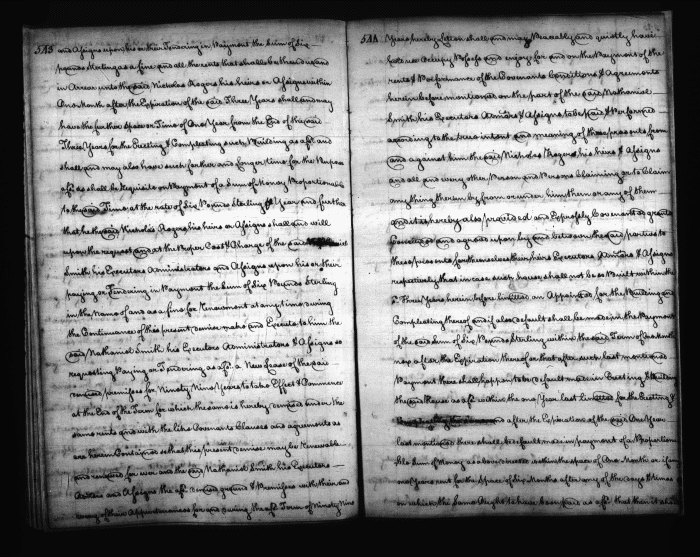 513
and Assigns upon his or their Tendering in Payment the Sum of Six
pounds Sterling as a fine and all the rents that shall be then due and
in Arrear unto the said Nicholas Rogers his heirs or Assigns within
One Month after the Expiration of the said Three Years shall and may
have the further space or Time of One Year from the End of the said
Three Years for the Erecting & Compleating such Building as afsd. and
shall and may also have such further and longer time for the Purpose
afsd. as shall be Requisite on Payment of a Sum of Money Proportionable
to the said Time at the rate of Six Pounds Sterling Year and further
that he the said Nicholas Rogers his heirs or Assigns shall and will
upon the request and at the Proper Cost & Charge of the said
Smith his Executors Administrators and Assigns upon his or their
paying or Tendering in Payment the Sum of Six Pounds Sterling
in the Name of and as a fine for Renewment at any time during
the Continuance of this present demise make and Execute to him the
said Nathaniel Smith his Executors Administrators & Assigns so
requesting Paying or Tendering as afsd. a New Lease of the said
demised premises for Ninety Nine Years to take Effect & Commence
at the End of the Term for which the same is hereby demised under the
same rents and with the like Covenants Clauses and agreements as
are herein Contained so that this present demise may be Renewable
and renewed for ever and the said Nathaniel Smith his Executors
Admrs. and Assigns the afsd. demised ground & Premises with their and
every of their Appurtenances for and during the afsd. Term of Ninety Nine
514
Years hereby Letten shall and may Peaceably and quietly have
hold use Occupy Possess and enjoy for and on the Payment of the
rents & Performance of the Covenants Conditions & Agreements
herein before mentioned on the part of the said Nathaniel
Smith his Executors Admors & Assigns to be paid & Performed
according to the true intent and meaning of these presents from
and against him the said Nicholas Rogers his heirs & Assigns
and all and every other Person and Persons Claiming or to Claim
any thing therein by from or under him them or any of them
and it is hereby also provided and Expressly Covenanted granted
Concluded and agreed upon by and between the said parties to
these presents for themselves their heirs Executors Admors & Assigns
respectively that in case such house shall not be so Built within the
sd. Three Years herein before limitted an Appointed for the Building and
Compleating thereof and if also default shall be made in the Payment
of the said Sum of Six Pounds Sterling within the said Term of One Month
nex after the Expiration thereof or that after such last mentioned
Payment there shall happen to be default made in Erecting & Building
the said House as afsd. within the one Year last limitted for the Erecting &
and after the Expiration of the said One Year
last mentioned there shall be default made in payment of a Proportion
able Sum of Money as above directed within the space of One Month or if in
any Years rent for the Space of Six Months after any of the days & times
on which the Same Ought to have been paid as afsd. that then it shall